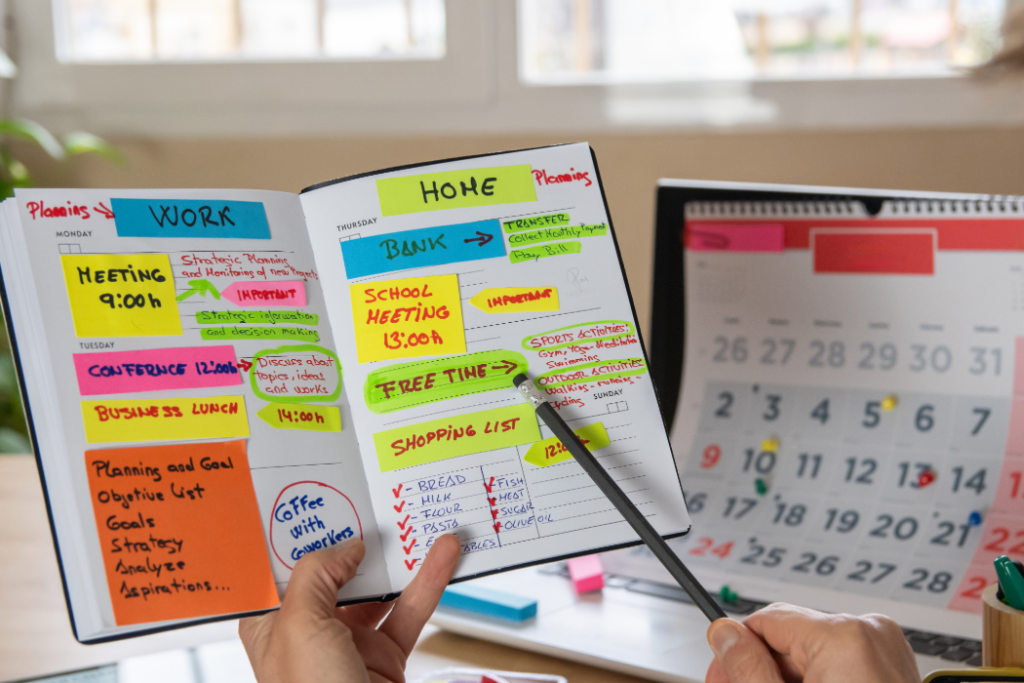 Planning
WORK
MONDAY
MEETING
9:00h
Strategic Planning
and Monitoring of new Project
IMPORTANT
Strategic information
and decision making
TUESDAY
CONFERNCE 12:00h
Discuss about
topics, ideas
and works
BUSINESS LUNCH
14:00h
Planning and Goal
Objetive List
Goals
Strategy
Analyze
Aspirations...
Coffee
with
coworkers
HOME
Planning
THURSDAY
BANK
TRANSFER
Collect Monthly Payment
Pay Bill
SCHOOL
MEETING
13:00h
IMPORTANT
FREE TIME
SPORTS ACTIVITIES:
Gym, Yoga-Meditation
Swimming
OUTDOOR ACTIVITIES
Walking-running
cycling
SUNDAY
SHOPPING LIST
- BREAD
- MILK
- FLOUR
- PASTA
- FISH
- MEAT
- SUGAR
- OLIVE OIL
26 27 28 29 30 31
2 3 4 5 6 7
9 10 11 12 13 14
16 17 18 19 20 21 22
24 25 26 27 28